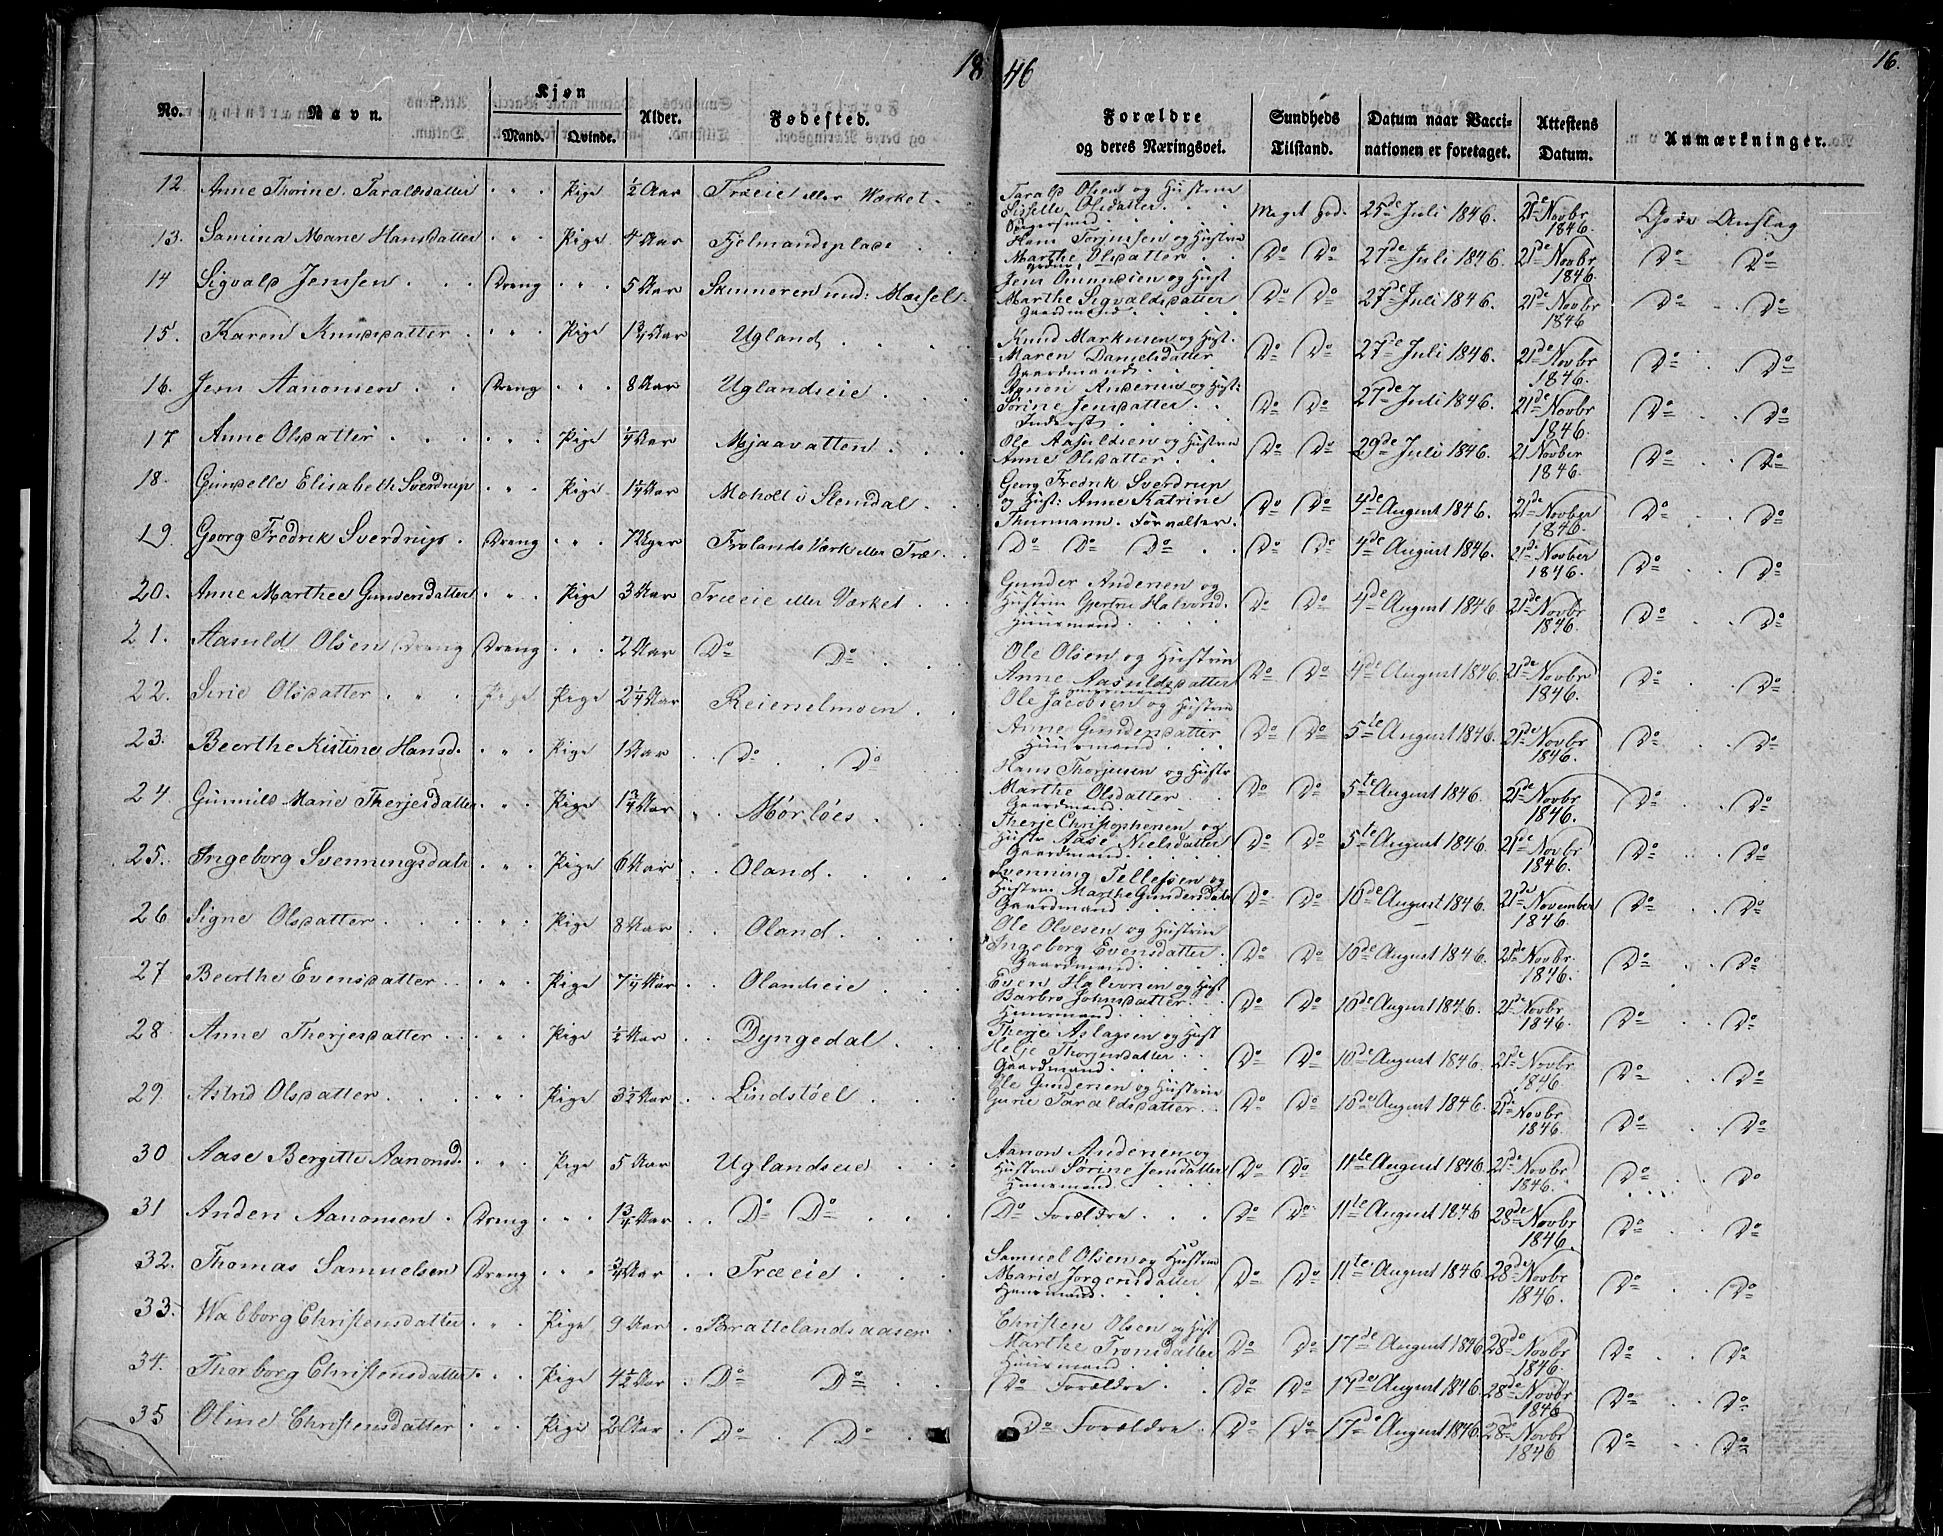 1846
16.
No. Navn. Kjøn Mand. Qvinde. Alder. Fødested. Forældre og deres Næringsvei. Sundheds Tilstand. Datum naar Vaccinationen er foretaget. Attestens Datum. Anmærkninger.
12 Anne Thorine Taraldsdatter Pige ½ Aar Træeie eller Værket. Tarald Olsen og Hustrue Sissell Olsdatter. Meget god. 25de Juli 1846. 21de Novbr 1846. God Anslag
13. Samina Marie Hansdatter Pige 4 Aar Fjelmandsplads Hans Torjussen og Hustrue Marthe Olsdatter Do Do 27de Juli 1846. 21de Novbr 1846. Do Do
14 Sigvald Jenssen Dreng 5 Aar Skinneren und: Messel Jens Omundsen og Hust Marthe Sigvaldsdatter Gaardmand Do Do 27de Juli 1846. 21de Novbr 1846 Do Do
15. Karen Knudsdatter Pige 1¾ Aar Ugland Knud Markusen og Hust. Maren Danielsdatter Gaardmand Do Do 27de Juli 1846. 21de Novbr 1846. Do Do
16. Jens Aanonsen Dreng 8 Aar Uglandseie Aanon Andersen og Hust: Sørine Jensdatter Inderst Do Do 27de Juli 1846. 21de Novbr 1846. Do Do
17 Anne Olsdatter Pige ¼ Aar Mjaavatten Ole Aasuldsen og Hustrue Anne Olsdatter Do Do 29de Juli 1846. 21 Novber 1846. Do Do
18. Gunelle Elisabeth Sverdrup Pige 1¼ Aar Moholt i Slemdal Georg Fredrik Sverdrup og Hust: Anne Katrine Thurmann. Forvalter. Do Do 4de August 1846. 21de Novber 1846. Do Do
19. Georg Fredrik Sverdrup Dreng 7 Uger Frolands Værk eller Træ Do Do Do Do Do 4de August 1846. 21de Novber 1846. Do Do
20. Anne Marthee Gundersdatter Pige 3 Aar Træeie eller Værket Gunder Andersen og Hustrue Gjertru Halvorsd. Huusmand Do Do 4de August 1846 21de Novbr 1846. Do Do
21. Aasuld Olsen Dreng Dreng 2 Aar Do Do Ole Olsen og Hustrue Anne Aasuldsdatter Huusmand Do Do 4de August 1846 21de Novbr 1846. Do Do
22. Sirie Olsdatter Pige Pige 2¼ Aar Reienelmoen Ole Jacobsen og Hustrue Anne Gundersdatter Huusmand Do Do 5te August 1846. 21de Novbr 1846. Do Do
23. Beerthe Kistine Hansd. Pige 1 Aar Do Do Hans Thorjusen og Hustr Marthe Olsdatter Gaardmand Do Do 5te August 1846. 21de Novbr 1846. Do Do
24. Gunnild Marie Therjesdatter Pige 1¾ Aar Mørløes Therje Christophersen og Hustr Aase Nielsdatter Gaardmand Do Do 5te August 1846. 21de Novbr 1846. Do Do
25. Ingeborg Svenningsdatr Pige 6 Aar Oland. Svenning Tellefsen og Hustrue Marthe Gundersdatr Gaardmand Do Do 10de August 1846. 21de November 1846. Do Do
26 Signe Olsdatter Pige 8 Aar Oland. Ole Olvesen og Hustrue Ingeborg Evensdatter. Gaardmand. Do Do 10de August 1846. 21de Novbr 1846. Do Do
27 Beerthe Evensdatter Pige 7½ Aar Olandseie Even Halvorsen og Hust Barbro Johnsdatter Huusmand Do Do 10de August 1846. 21de Novbr 1846. Do Do
28 Anne Therjesdatter Pige ½ Aar Dyngedal Therje Aslagsen og Hust Helje Thorjusdatter Gaardmand Do Do 10de August 1846. 21de Novbr 1846 Do Do
29. Astrid Olsdatter Pige 3½ Aar Lindstöel Ole Gundersen og Hustrue Gurie Taraldsdatter Do Do 10de August 1846. 21de Novbr 1846. Do Do
30 Aase Bergitte Aanonsd. Pige 5 Aar Uglandseie Aanon Andersen og Hustrue Sørine Jensdatter Huusmand Do Do 11te August 1846. 21de Novbr 1846. Do Do
31 Anders Aanonsen Dreng 1¾ Aar Do Do Do Forældre Do Do 11te August 1846 28de Novbr 1846. Do Do
32. Thomas Samuelsen Dreng ¾ Aar Træeie Samuel Olsen og Hustrue Marie Jørgensdatter Huusmand Do Do 11te August 1846. 28de Novbr 1846. Do Do
33. Walborg Christensdatter Pige 9 Aar Brattelandsaasen Christen Olsen og Hust Marthe Tronsdatter Huusmand Do Do 17de August 1846 28de Novbr 1846. Do Do
34. Thorborg Christensdatter Pige 4½ Aar Do Do Do Forældre Do Do 17de August 1846 28de Novbr 1846 Do Do
35 Oline Christensdatter Pige 2 Aar Do Do Do Forældre Do Do 17de August 1846. 28de Novbr 1846 Do Do